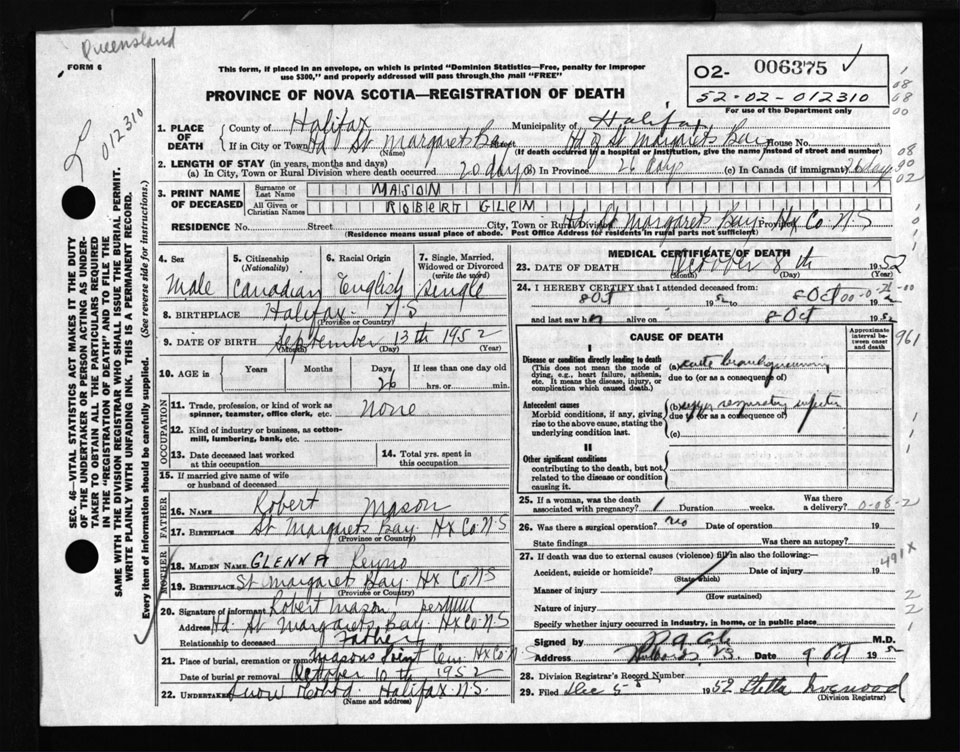 Queensland
FORM 6
This form, if placed in an envelope, on which is printed "Dominion Statistics—Free, penalty for improper
use $300," and properly addressed will pass through the mail "FREE"
PROVINCE OF NOVA SCOTIA—REGISTRATION OF DEATH
02- 006375
52-02-012310
For use of the Department only
012310
SEC. 46—VITAL STATISTICS ACT MAKES IT THE DUTY
OF THE UNDERTAKER OR PERSON ACTING AS UNDER-
TAKER TO OBTAIN ALL THE PARTICULARS REQUIRED
IN THE "REGISTRATION OF DEATH" AND TO FILE THE
SAME WITH THE DIVISION REGISTRAR WHO SHALL ISSUE THE BURIAL PERMIT.
WRITE PLAINLY WITH UNFADING INK. THIS IS A PERMANENT RECORD.
Every item of information should be carefully supplied. (See reverse side for instructions.)
1. PLACE OF DEATH County of Halifax Municipality of Halifax
If in City or Town Hd St Margarets Bay Street Hd St Margarets Bay House No.
(Name) (If death occurred in a hospital or institution, give the name instead of street and number)
2. LENGTH OF STAY (in years, months and days)
(a) In City, Town or Rural Division where death occurred 20 days (b) In Province 26 days (c) In Canada (if immigrant) 26 days
3. PRINT NAME OF DECEASED Surname or Last Name MASON
All Given or Christian Names ROBERT GLEN
RESIDENCE No. Street City, Town or Rural Division Hd St Margarets Bay Province Hx Co N.S
(Residence means usual place of abode. Post Office Address for residents in rural parts not sufficient)
4. Sex Male
5. Citizenship (Nationality) Canadian
6. Racial Origin English
7. Single, Married, Widowed or Divorced (write the word) Single
8. BIRTHPLACE Halifax N.S
(Province or Country)
9. DATE OF BIRTH September 13th 1952
(Month) (Day) (Year)
10. AGE in Years Months Days 26 If less than one day old hrs. or min.
OCCUPATION
11. Trade, profession, or kind of work as spinner, teamster, office clerk, etc. None
12. Kind of industry or business, as cotton-mill, lumbering, bank, etc.
13. Date deceased last worked at this occupation
14. Total yrs. spent in this occupation
15. If married give name of wife or husband of deceased
FATHER
16. Name Robert Mason
17. Birthplace St Margarets Bay Hx Co N.S
(Province or Country)
MOTHER
18. Maiden Name GLENNA Reyno
19. Birthplace St Margarets Bay Hx Co N S
(Province or Country)
20. Signature of informant Robert Mason per
Address Hd. St Margarets Bay. Hx Co N.S
Relationship to deceased Father
21. Place of burial, cremation or removal Masons Point Cem. Hx Co N.S
Date of burial or removal October 10th 1952
22. Undertaker Snow Halifax N.S.
(Name and address)
MEDICAL CERTIFICATE OF DEATH
23. DATE OF DEATH October 8th 1952
(Month) (Day) (Year)
24. I HEREBY CERTIFY that I attended deceased from:
8 Oct 1952 8 Oct 19
and last saw h alive on 8 Oct 1952
CAUSE OF DEATH
Approximate interval between onset and death
961
I
Disease or condition directly leading to death
(This does not mean the mode of dying, e.g., heart failure, asthenia, etc. It means the disease, injury, or complication which caused death.)
(a)
due to (or as a consequence of)
Antecedent causes
Morbid conditions, if any, giving rise to the above cause, stating the underlying condition last.
(b) upper respiratory infection
due to (or as a consequence of)
(c)
II
Other significant conditions
contributing to the death, but not related to the disease or condition causing it.
25. If a woman, was the death associated with pregnancy? Duration weeks. Was there a delivery?
26. Was there a surgical operation? no Date of operation 19
State findings Was there an autopsy?
27. If death was due to external causes (violence) fill in also the following:—
Accident, suicide or homicide? Date of injury 19
(State which)
Manner of injury
(How sustained)
Nature of injury
Specify whether injury occurred in industry, in home, or in public place
491X
Signed by M.D.
Address Hubbards, N.S. Date 9 Oct 1952
28. Division Registrar's Record Number
29. Filed Dec 5 1952 Stella
(Division Registrar)